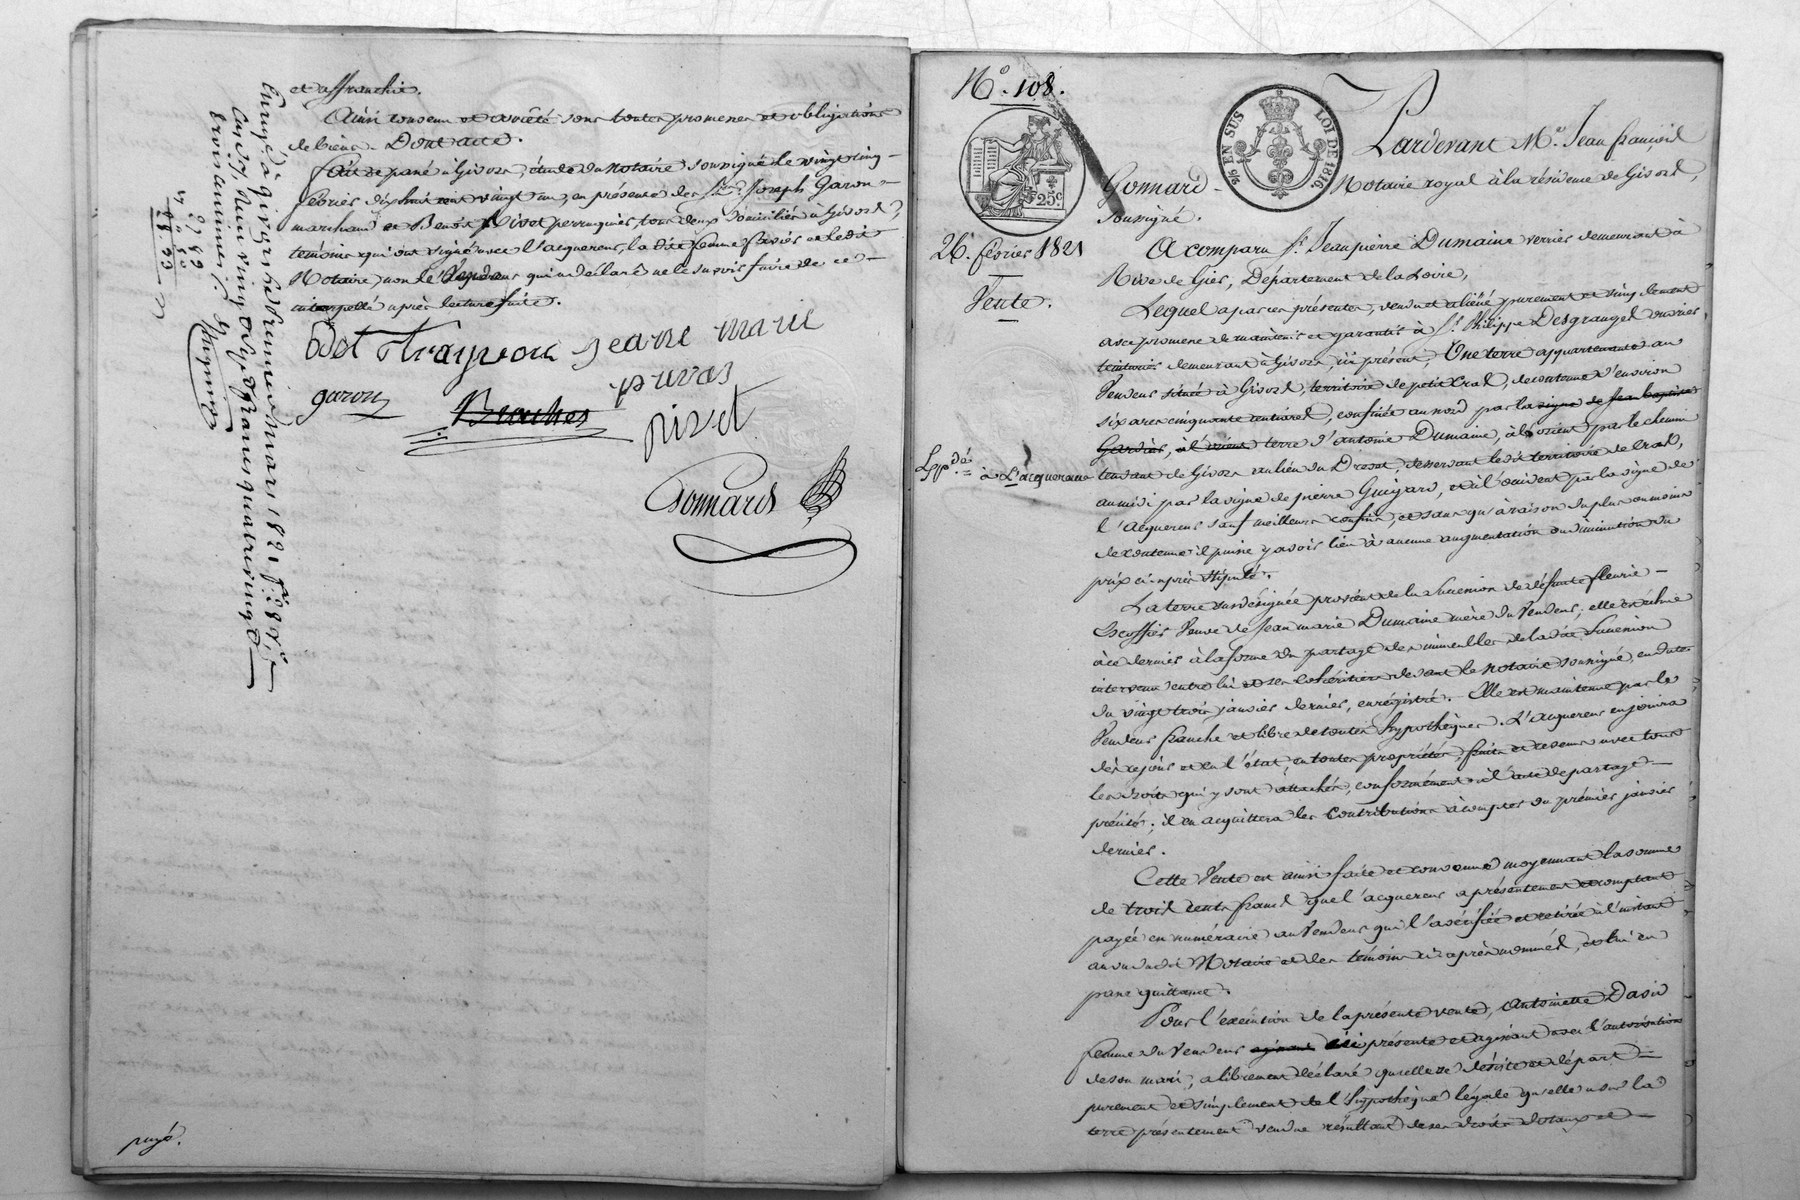 et affranchie.
Ainsi convenu et arrêté sous toutes promesses et obligations
de biens. Dont acte.
Fait et passé à Givors, étude du Notaire soussigné le vingt cinq
février dix huit cent vingt un, en présence des Srs. Joseph Garon
marchand et Benoit Pivot perruquier, tous deux domiciliés à Givors,
témoins qui ont signé avec l'acquereur, la dite femme et ledit
Notaire, non le Vendeur qui a déclaré ne le savoir faire de ce
interpellé après lecture faite.
jeanne marie
garon
privas
pivot
Gonnard
Enregé à Givors le premier mars 1821 fo
payé.
No. 108.
25 EN SUS
LOI DE 1816.
25c
Pardevant Me. Jean françois
Gonnard Notaire royal à la résidence de Givors,
soussigné.
26. février 1821
Vente.
A comparu Sr. Jean pierre Dumaine verrier demeurant à
Rive de Gier, Département de la Loire,
Lequel a par ces présentes, vendu et aliéné purement et simplement
avec promesse de maintenir et garantir à Sr. Philippe Desgranges ouvrier
teinturier demeurant à Givors, ici présent, Une terre appartenante au
Vendeur située à Givors, territoire de petit Cras, de contenue d'environ
six ares cinquante centiares, confinée au nord par la vigne de Jean baptiste
terre d'antoine Dumaine, à l'orient par le chemin
Exp. dé. à L'acquereur
tendant de Givors au lieu du Drevet, desservant le dit territoire de Cras,
au midi par la vigne de pierre Guigard, et à l'occident par la vigne de
l'acquereur sauf meilleurs confins, et sans qu'à raison du plus ou moins
de contenue il puisse y avoir lieu à aucune augmentation ou diminution du
prix ci-après stipulé.
La terre susdésignée provient de la succession de défunte fleurie
Escoffier Veuve de Jean marie Dumaine mère du Vendeur; elle est échue
à ce dernier à la forme du partage des immeubles de la dite succession
intervenu entre lui et ses cohéritiers devant le notaire soussigné, en date
du vingt trois janvier dernier, enregistré. Elle est maintenue par le
Vendeur franche et libre de toutes hypothèques. L'acquereur en jouira
dès ce jour et en l'état, en toutes propriétés, fruits et revenus avec tous
les droits qui y sont attachés, conformément à l'acte de partage
précité; il en acquittera les contributions à compter du prémier janvier
dernier.
Cette Vente est ainsi faite et convenue moyennant la somme
de trois cents francs que l'acquereur a présentement et comptant
payée en numéraire au Vendeur qui l'a vérifiée et retirée à l'instant
au vu du dit Notaire et des témoins ci après nommés, et lui en
passe quittance.
Pour l'exécution de la présente vente, Antoinette Dasin
femme du Vendeur ici présente et agissant avec l'autorisation
de son mari, a librement déclaré qu'elle se désiste et départ
purement et simplement de l'hypothèque légale qu'elle a sur la
terre présentement vendue résultant de ses droits dotaux et